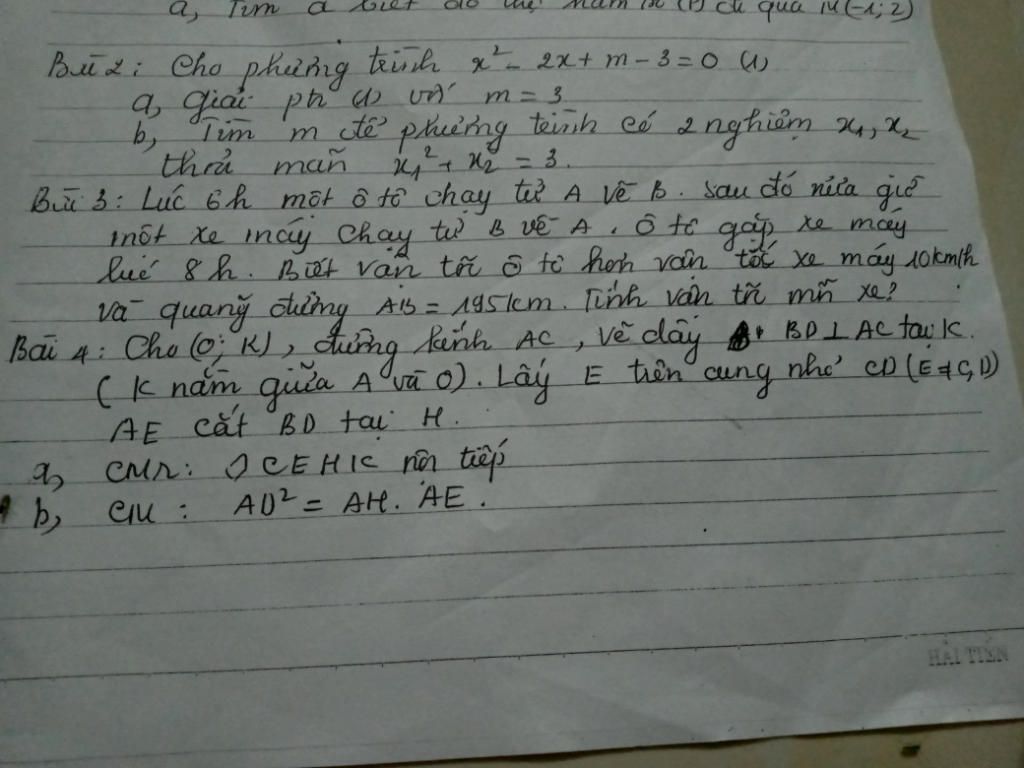 a, Tìm a biết đồ thị hàm số (P) đi qua M(-1; 2)
Bài 2: Cho phương trình x² - 2x + m - 3 = 0 (1)
a, giải pt (1) với m = 3
b, Tìm m để phương trình có 2 nghiệm x₁, x₂
thỏa mãn x₁² + x₂ = 3.
Bài 3: Lúc 6h một ô tô chạy từ A về B. sau đó nửa giờ
một xe máy chạy từ B về A. Ô tô gặp xe máy
lúc 8h. Biết vận tốc ô tô hơn vận tốc xe máy 10km/h
và quang đường AB = 195km. Tính vận tốc mỗi xe?
Bài 4: Cho (O; K), đường kính AC, vẽ dây BD ⊥ AC tại K.
( K nằm giữa A và O). Lấy E trên cung nhỏ CD (E ≠ C, D)
AE cắt BD tại H.
a, CMR: CEHK nội tiếp
b, CM: AD² = AH. AE.
HẢI TIẾN